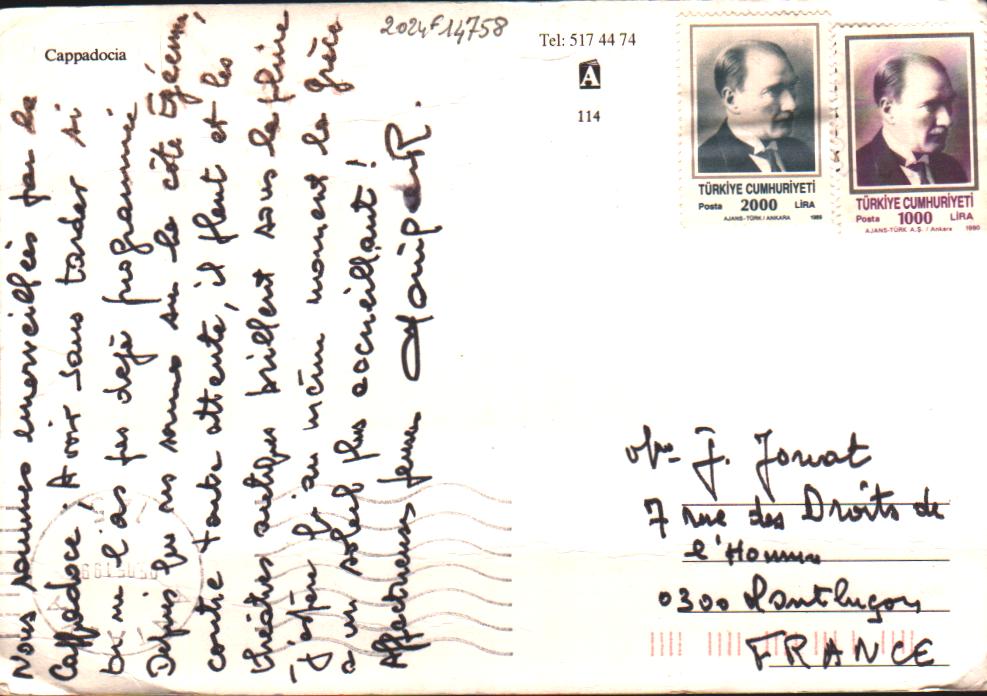 2024F14758
Cappadocia
Tel: 517 44 74
A
114
TÜRKİYE CUMHURİYETİ
Posta 2000 LİRA
AJANS-TÜRK / ANKARA 1989
TÜRKİYE CUMHURİYETİ
Posta 1000 LİRA
AJANS-TÜRK A.Ş. / Ankara 1990
Nous sommes émerveillés par la
Cappadoce; A voir sans tarder si
tu ne l'as pas déjà programmé
Depuis que nous sommes sur la côte Egéenne,
contre toute attente, il pleut et les
théâtres antiques brillent sous la pluie
J'espère qu'au même moment la Grèce
a un soleil plus accueillant!
Affectueuses pensées
J. Jorrat
7 rue des Droits de
l'Homme
03100 Montluçon
FRANCE